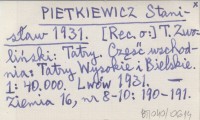 PIETKIEWICZ Stani-
sław 1931. [Rec. o:] T. Zwo-
liński: Tatry. Część wschod-
nia: Tatry Wysokie i Bielskie.
1:40.000. Lwów 1931. —
Ziemia 16, nr 8-10: 190-191.